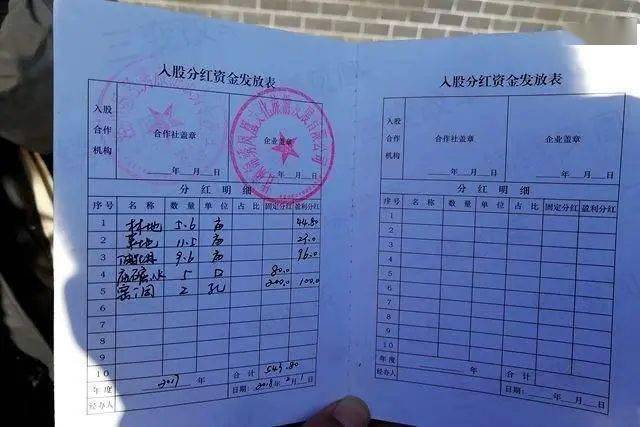 入股分红资金发放表
入股合作机构 合作社盖章 企业盖章
年 月 日 年 月 日
分红明细
序号 名称 数量 单位 占比 固定分红 盈利分红
1 林地 5.6 亩 44.80
2 草地 11.5 亩 23.0
3 9.6 亩 96.0
4 5 口 80.0
5 窑洞 2 孔 200.0 100.0
6
7
8
9
10
年度 2017 年 合计 543.80
经办人 日期:2018年2月1日
入股分红资金发放表
入股合作机构 合作社盖章 企业盖章
年 月 日 年 月 日
分红明细
序号 名称 数量 单位 占比 固定分红 盈利分红
1
2
3
4
5
6
7
8
9
10
年度 年 合计
经办人 日期: 年 月 日